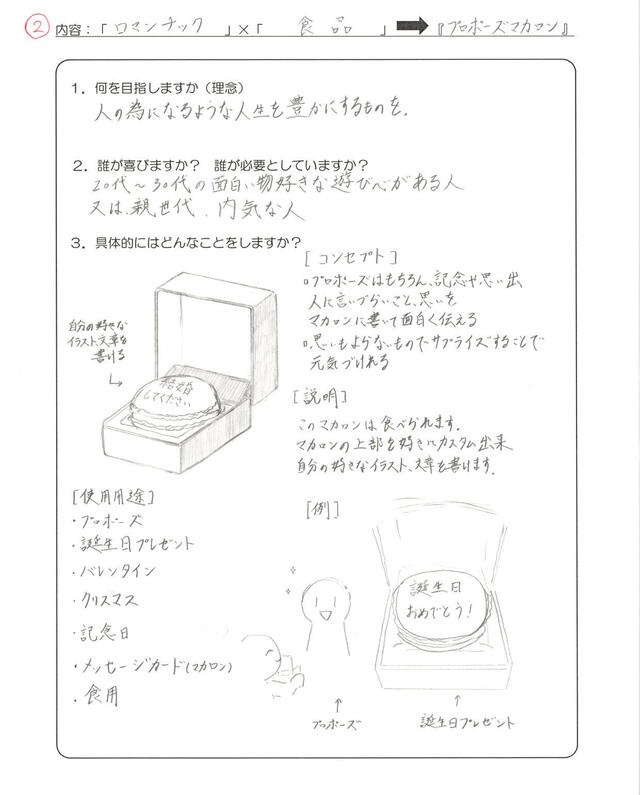 ② 内容：「 ロマンチック 」×「 食品 」 ➡ 『プロポーズマカロン』
1．何を目指しますか（理念）
人の為になるような人生を豊かにするものを。
2．誰が喜びますか？　誰が必要としていますか？
20代～30代の面白い物好きな遊び心がある人
又は、親世代、内気な人
3．具体的にはどんなことをしますか？
自分の好きな
イラスト、文章を
書ける
結婚
してください
[コンセプト]
○プロポーズはもちろん、記念や思い出
人に言いづらいこと、思いを
マカロンに書いて面白く伝える
○思いもよらないものでサプライズすることで
元気づけれる
[説明]
このマカロンは食べられます。
マカロンの上部を好きにカスタム出来
自分の好きなイラスト、文章を書けます。
[使用用途]
・プロポーズ
・誕生日プレゼント
・バレンタイン
・クリスマス
・記念日
・メッセージカード(マカロン)
・食用
[例]
誕生日
おめでとう！
↑
プロポーズ
↑
誕生日プレゼント